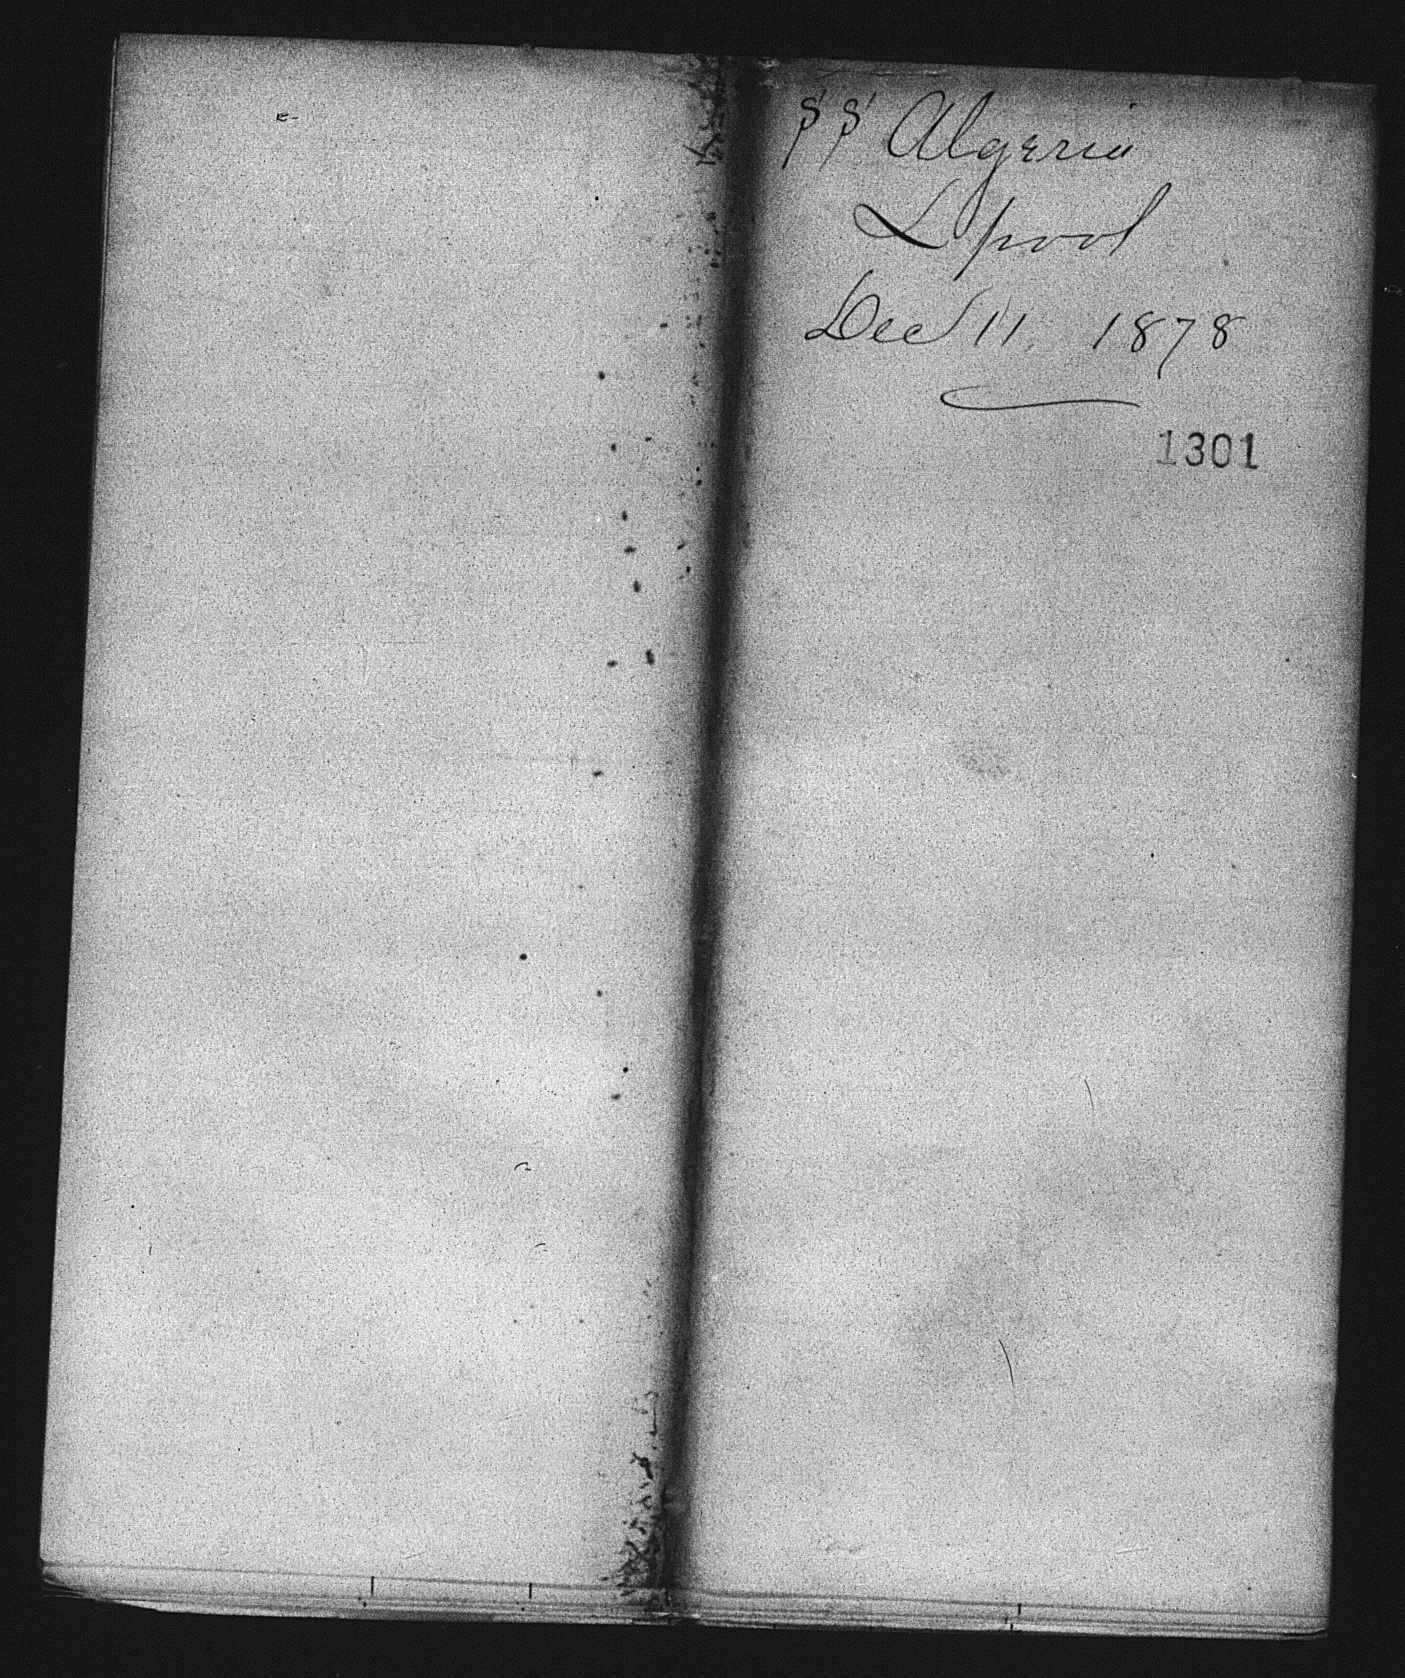 SS Algeria
Lpool
Dec 11, 1878
1301